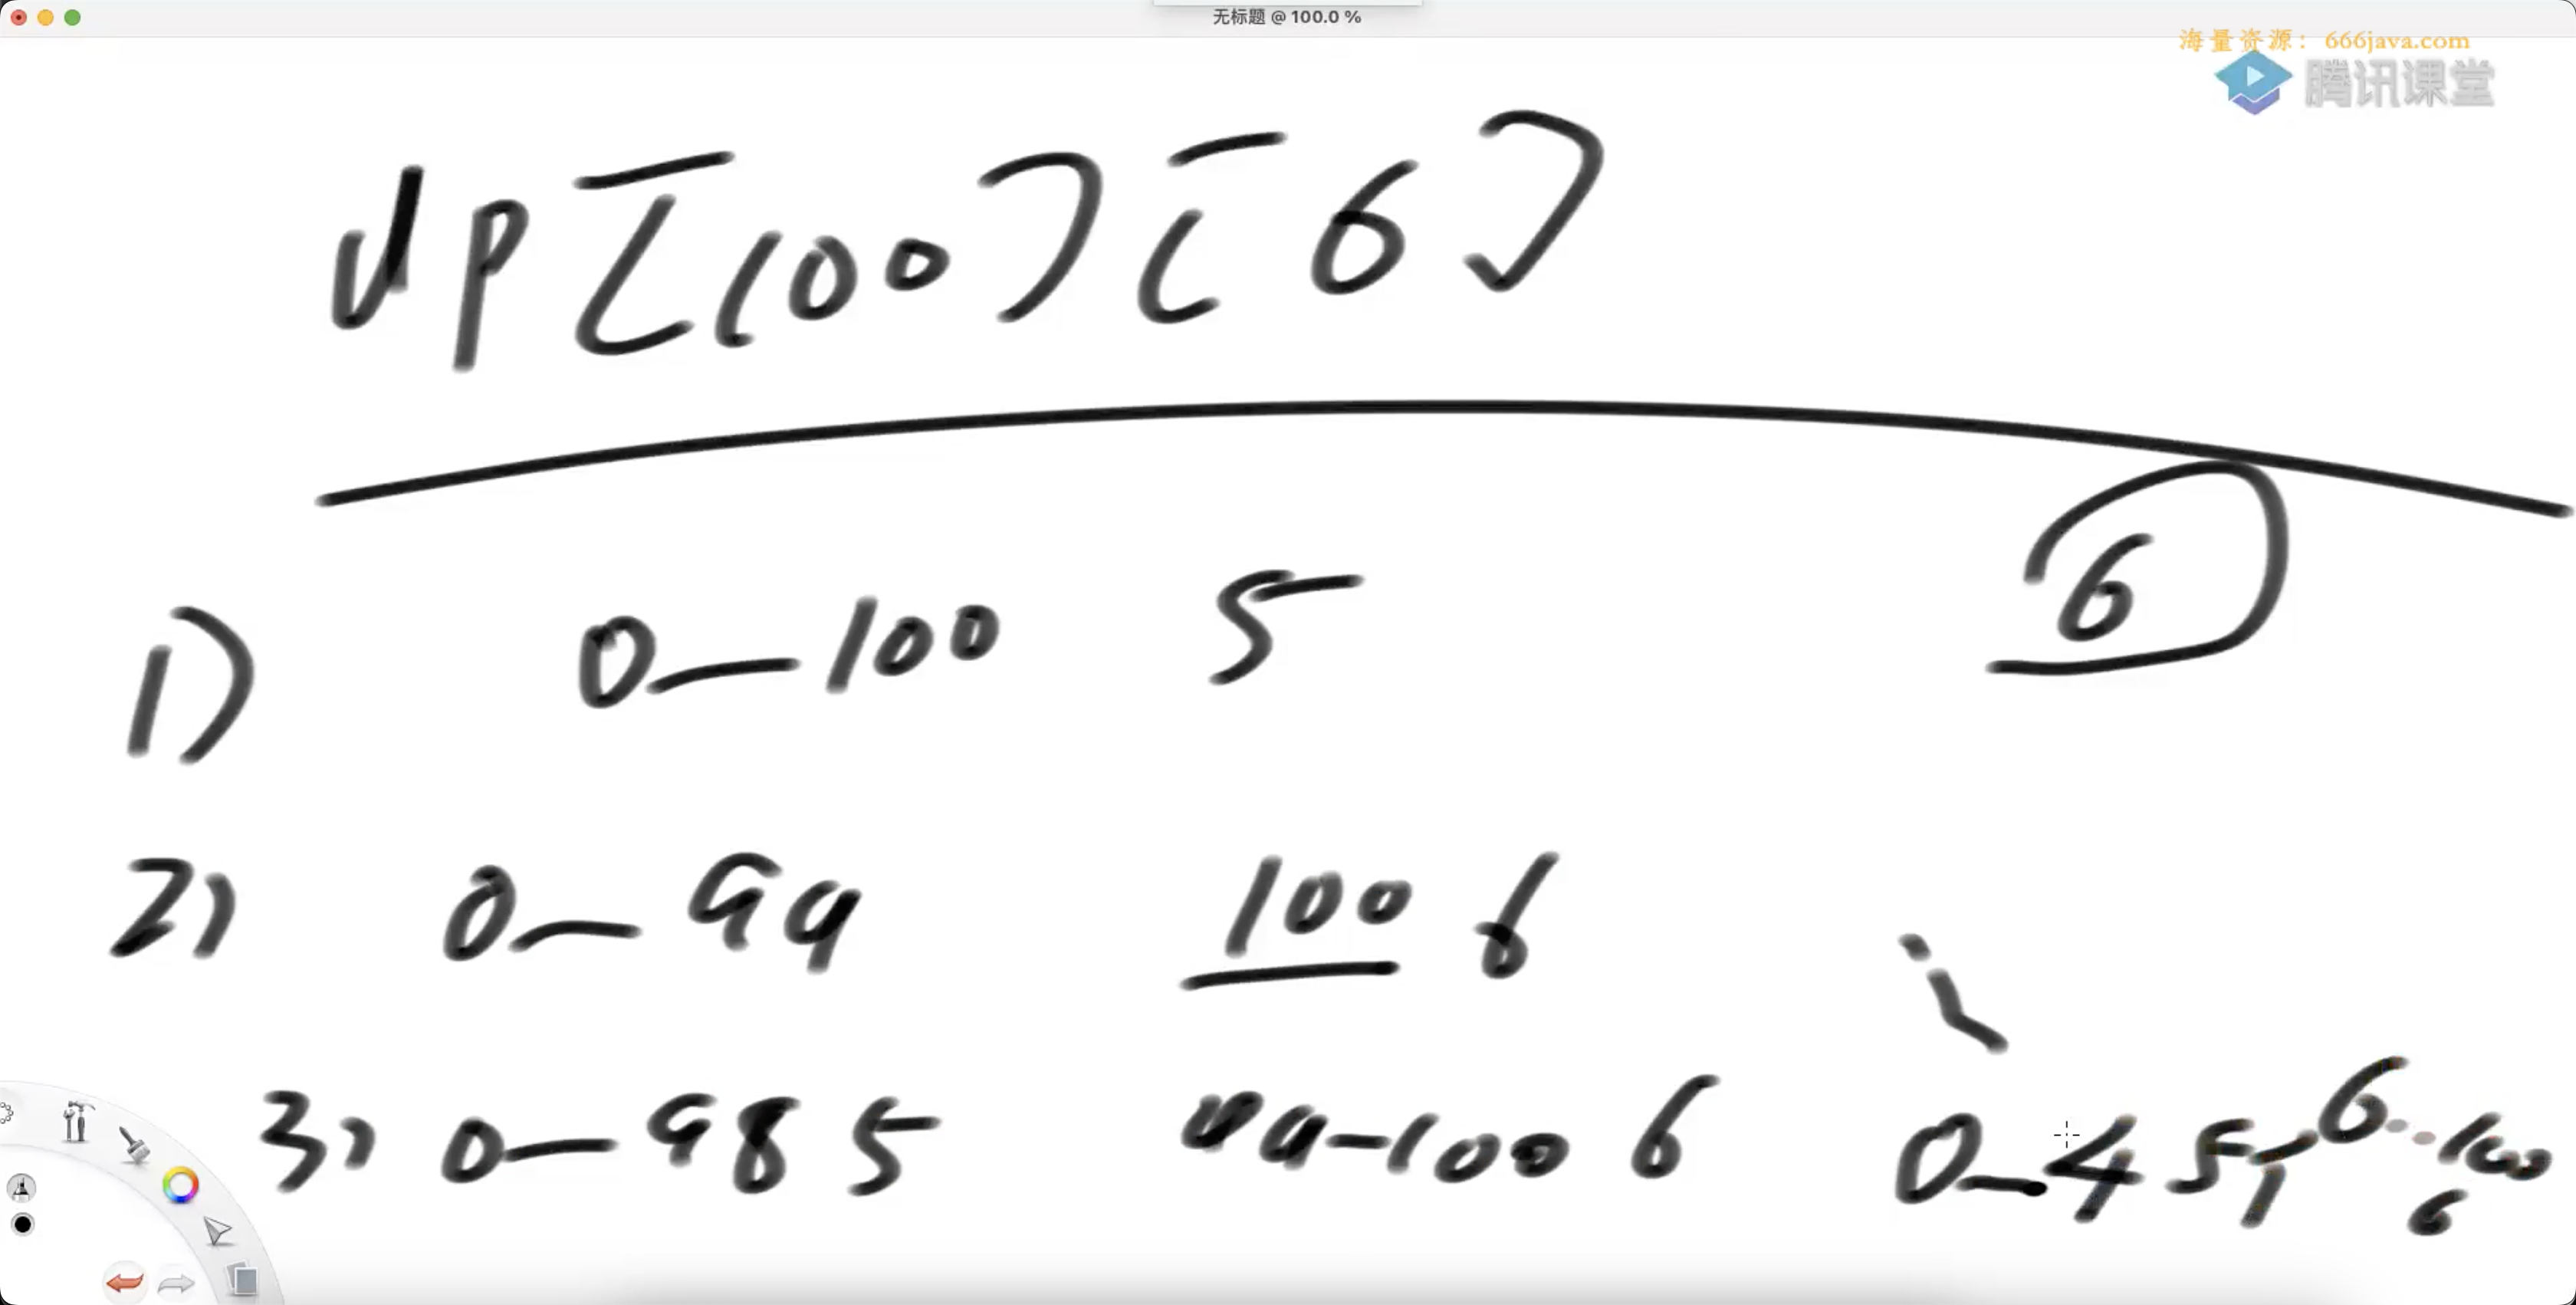 无标题 @ 100.0 %
海量资源：666java.com
腾讯课堂
dp[100][6]
6
1) 0—100 5
2) 0—99 100 6
3) 0—98 5 99-100 6 0—4 5 6..100
6